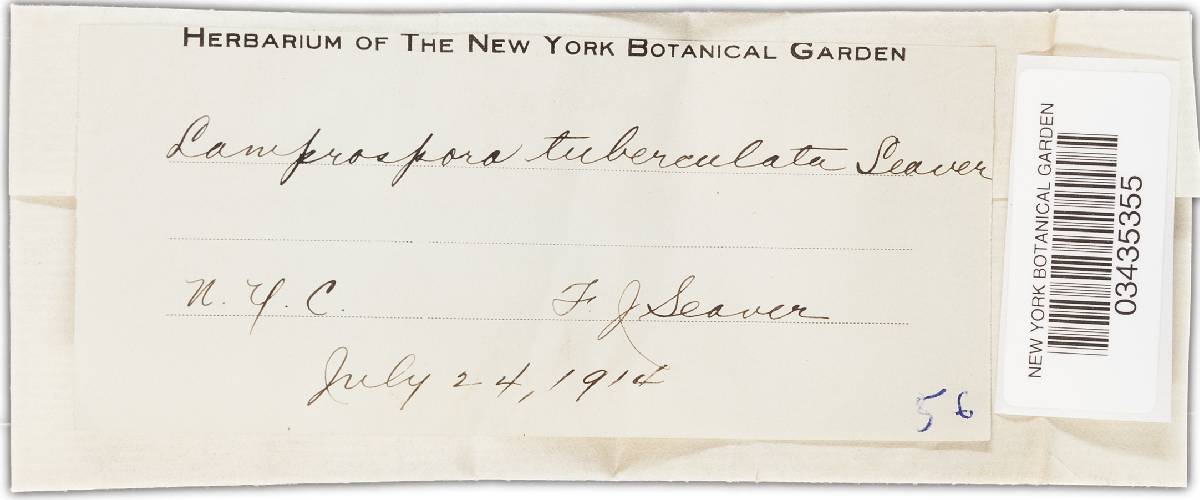 HERBARIUM OF THE NEW YORK BOTANICAL GARDEN
Lamprospora tuberculata Seaver
N. Y. C. F. J Seaver
July 24, 1914
56
NEW YORK BOTANICAL GARDEN
03435355